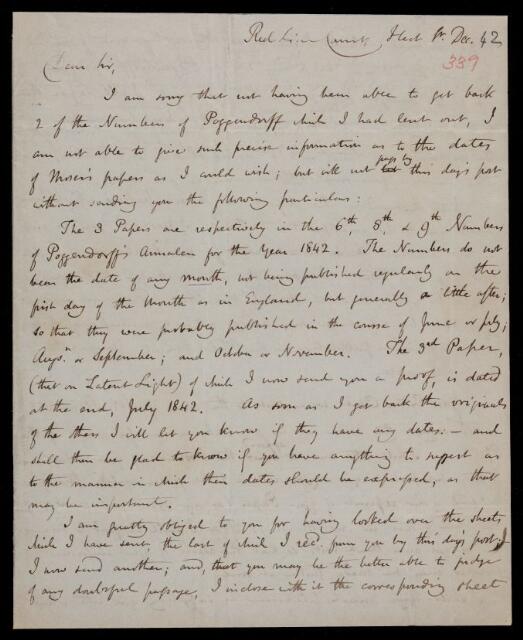 Red Lion Court, Fleet St. Dec. 42
339
Dear Sir,
I am sorry that not having been able to get back
2 of the Numbers of Poggendorff which I had lent out, I
am not able to give such precise information as to the dates
of Moser's papers as I could wish; but will not let pass by this day's post
without sending you the following particulars:
The 3 Papers are respectively in the 6th, 8th, & 9th Numbers
of Poggendorff's Annalen for the Year 1842. The Numbers do not
bear the date of any month, not being published regularly on the
first day of the Month as in England, but generally a little after;
so that they were probably published in the course of June or July;
Augt. or September; and October or November. The 3rd Paper,
(that on Latent Light) of which I now send you a proof, is dated
at the end, July 1842. As soon as I get back the originals
of the others I will let you know if they have any dates: – and
shall then be glad to know if you have anything to suggest as
to the manner in which these dates should be expressed, as that
may be important.
I am greatly obliged to you for having looked over the sheets
which I have sent, the last of which I recd. from you by this day's post.
I now send another; and, that you may be the better able to judge
of any doubtful passage, I inclose with it the corresponding sheet